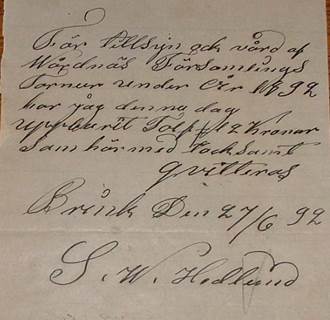 För tillsyn och vård af
Wårdnäs Församlings
Tornur under År 1892
har jag denna dag
uppburit Tolf 12 Kronor
som härmed tacksamt
qvitteras
Brink Den 27/6 92
S. W. Hedlund